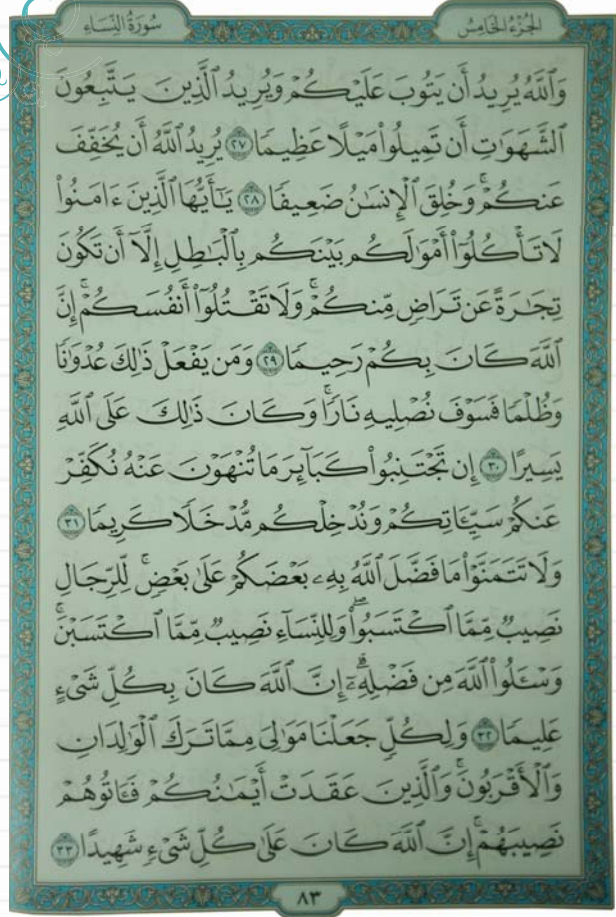 سُورَةُ النِّسَاءِ
الجُزْءُ الخَامِسُ
وَٱللَّهُ يُرِيدُ أَن يَتُوبَ عَلَيۡكُمۡ وَيُرِيدُ ٱلَّذِينَ يَتَّبِعُونَ
ٱلشَّهَوَٰتِ أَن تَمِيلُواْ مَيۡلًا عَظِيمٗا ٢٧ يُرِيدُ ٱللَّهُ أَن يُخَفِّفَ
عَنكُمۡۚ وَخُلِقَ ٱلۡإِنسَٰنُ ضَعِيفٗا ٢٨ يَٰٓأَيُّهَا ٱلَّذِينَ ءَامَنُواْ
لَا تَأۡكُلُوٓاْ أَمۡوَٰلَكُم بَيۡنَكُم بِٱلۡبَٰطِلِ إِلَّآ أَن تَكُونَ
تِجَٰرَةً عَن تَرَاضٖ مِّنكُمۡۚ وَلَا تَقۡتُلُوٓاْ أَنفُسَكُمۡۚ إِنَّ
ٱللَّهَ كَانَ بِكُمۡ رَحِيمٗا ٢٩ وَمَن يَفۡعَلۡ ذَٰلِكَ عُدۡوَٰنٗا
وَظُلۡمٗا فَسَوۡفَ نُصۡلِيهِ نَارٗاۚ وَكَانَ ذَٰلِكَ عَلَى ٱللَّهِ
يَسِيرًا ٣٠ إِن تَجۡتَنِبُواْ كَبَآئِرَ مَا تُنۡهَوۡنَ عَنۡهُ نُكَفِّرۡ
عَنكُمۡ سَيِّـَٔاتِكُمۡ وَنُدۡخِلۡكُم مُّدۡخَلٗا كَرِيمٗا ٣١
وَلَا تَتَمَنَّوۡاْ مَا فَضَّلَ ٱللَّهُ بِهِۦ بَعۡضَكُمۡ عَلَىٰ بَعۡضٖۚ لِّلرِّجَالِ
نَصِيبٞ مِّمَّا ٱكۡتَسَبُواْۖ وَلِلنِّسَآءِ نَصِيبٞ مِّمَّا ٱكۡتَسَبۡنَۚ
وَسۡـَٔلُواْ ٱللَّهَ مِن فَضۡلِهِۦٓۚ إِنَّ ٱللَّهَ كَانَ بِكُلِّ شَيۡءٍ
عَلِيمٗا ٣٢ وَلِكُلّٖ جَعَلۡنَا مَوَٰلِيَ مِمَّا تَرَكَ ٱلۡوَٰلِدَانِ
وَٱلۡأَقۡرَبُونَۚ وَٱلَّذِينَ عَقَدَتۡ أَيۡمَٰنُكُمۡ فَـَٔاتُوهُمۡ
نَصِيبَهُمۡۚ إِنَّ ٱللَّهَ كَانَ عَلَىٰ كُلِّ شَيۡءٖ شَهِيدًا ٣٣
٨٣